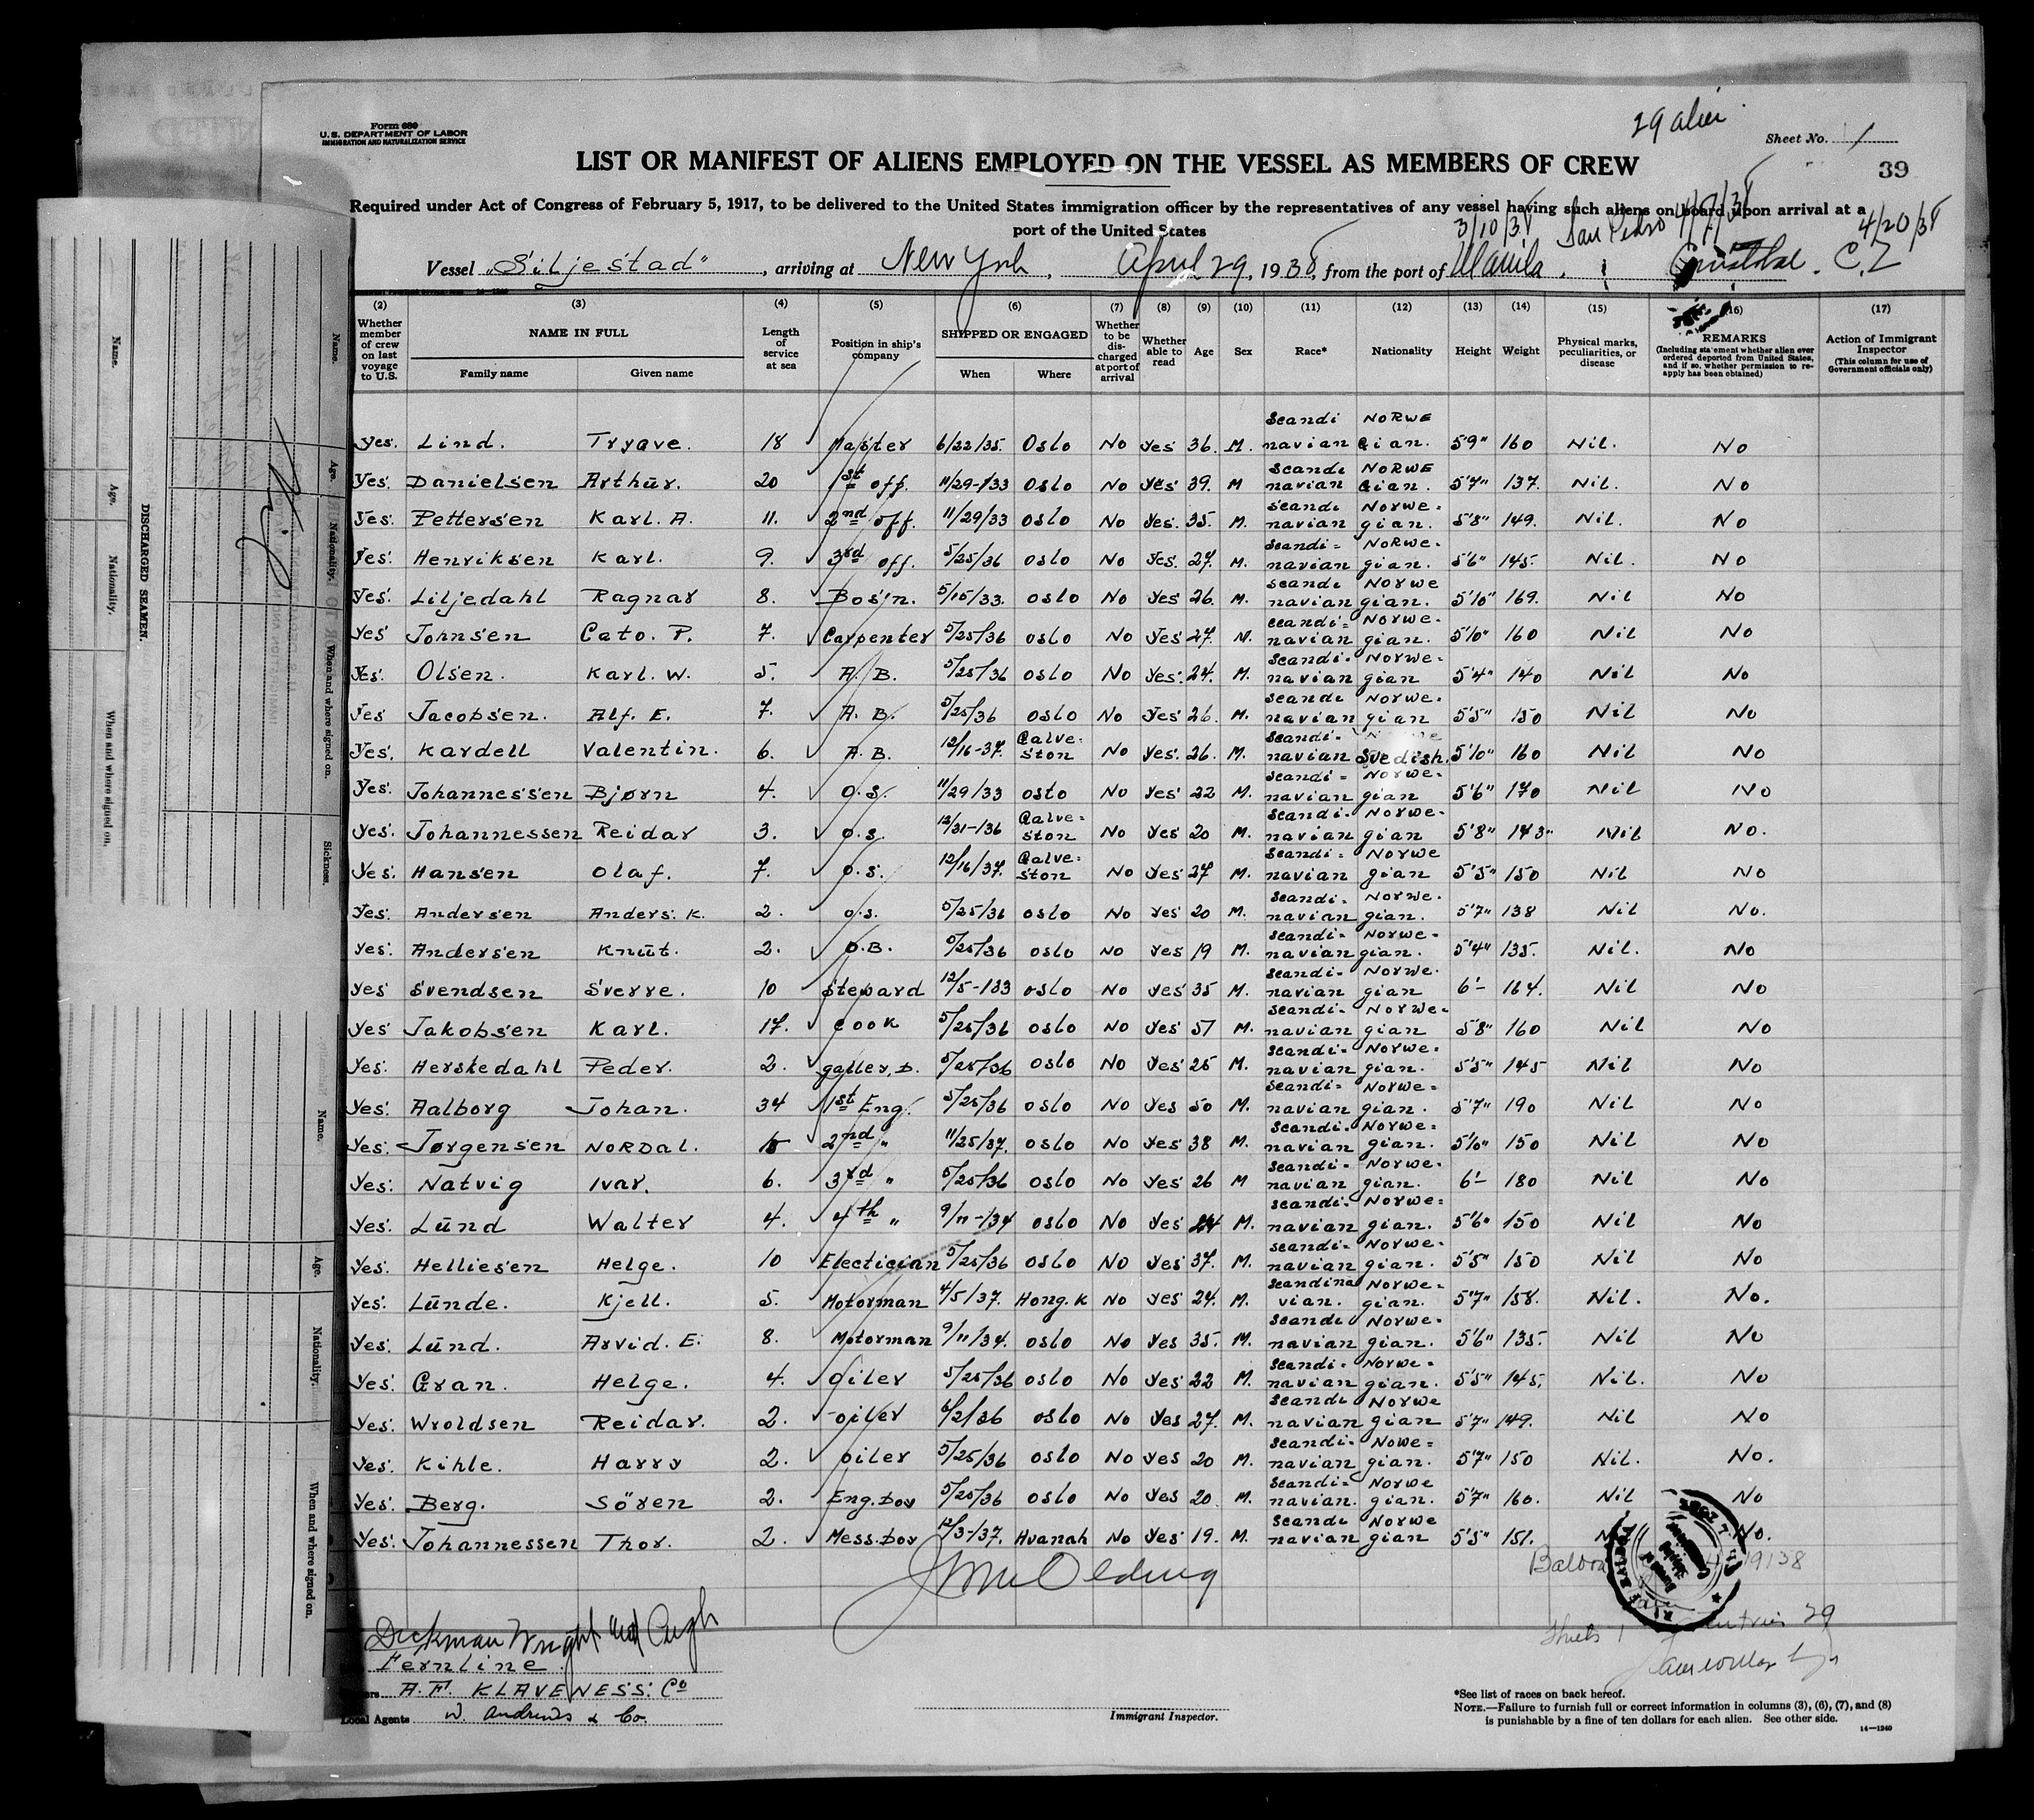 29 alien
Form 689
U. S. DEPARTMENT OF LABOR
IMMIGRATION AND NATURALIZATION SERVICE
Sheet No. 1
LIST OR MANIFEST OF ALIENS EMPLOYED ON THE VESSEL AS MEMBERS OF CREW
39
Required under Act of Congress of February 5, 1917, to be delivered to the United States immigration officer by the representatives of any vessel having such aliens on board upon arrival at a
port of the United States
3/10/38 San Pedro 4/7/38 4/20/38
Vessel "Siljestad", arriving at New York, April 29, 1938, from the port of Manila, Cristobal. C.Z
(2) (3) (4) (5) (6) (7) (8) (9) (10) (11) (12) (13) (14) (15) (16) (17)
Whether member of crew on last voyage to U.S.
NAME IN FULL
Family name Given name
Length of service at sea
Position in ship's company
SHIPPED OR ENGAGED
When Where
Whether to be discharged at port of arrival
Whether able to read
Age Sex Race* Nationality Height Weight
Physical marks, peculiarities, or disease
REMARKS
(Including statement whether alien ever ordered deported from United States, and if so, whether permission to reapply has been obtained)
Action of Immigrant Inspector
(This column for use of Government officials only)
Yes. Lind. Trygve. 18 Master 6/22/35. Oslo No Yes 36. M. Scandinavian NORWEGian. 5'9" 160 Nil. No
Yes. Danielsen Arthur. 20 1st off. 11/29-133 Oslo No Yes 39. M Scandinavian NORWEGian. 5'7" 137. Nil. No
Yes. Pettersen Karl. A. 11. 2nd off. 11/29/33 Oslo No Yes. 35. M. Scandinavian Norwe-gian. 5'8" 149. Nil. No
Yes. Henriksen Karl. 9. 3rd off. 5/25/36 Oslo No Yes. 27. M. Scandi-navian Norwe-gian. 5'6" 145. Nil. No
Yes. Liljedahl Ragnar 8. Bos'n. 5/15/33. Oslo No Yes 26. M. Scandinavian Norwegian. 5'10" 169. Nil No
Yes Johnsen Cato. P. 7. Carpenter 5/25/36 Oslo No Yes 27. M. Scandi-navian Norwe-gian. 5'10" 160 Nil No
Yes. Olsen. Karl. W. 5. A. B. 5/25/36 Oslo No Yes. 24. M. Scandi-navian Norwe-gian 5'4" 140 Nil No
Yes Jacobsen. Alf. E. 7. A. B. 5/25/36 Oslo No Yes 26. M. Scandinavian Norwe-gian 5'5" 150 Nil No
Yes. Kardell Valentin. 6. A. B. 12/16-37. Galve-ston No Yes. 26. M. Scandi-navian Svedish. 5'10" 160 Nil No
Yes. Johannessen Bjørn 4. O.S. 11/29/33 Oslo No Yes 22 M. Scandi-navian Norwe-gian 5'6" 170 Nil No
Yes. Johannessen Reidar 3. O.S. 12/31-136 Galve-ston No Yes 20 M. Scandi-navian Norwe-gian 5'8" 143" Nil No.
Yes. Hansen Olaf. 7. O.S. 12/16/37. Galve-ston No Yes 27 M. Scandi-navian Norwegian 5'5" 150 Nil No
Yes. Andersen Anders. K. 2. O.S. 5/25/36 Oslo No Yes 20 M. Scandi-navian Norwe-gian. 5'7" 138 Nil No.
Yes. Andersen Knut. 2. O.B. 5/25/36 Oslo No Yes 19 M. Scandi-navian Norwe-gian. 5'4" 135. Nil. No
Yes Svendsen Sverre. 10 Steward 12/5-133 Oslo No Yes 35 M. Scandi-navian Norwe-gian 6'- 164. Nil No
Yes Jakobsen Karl. 17. Cook 5/25/36 Oslo No Yes 51 M. Scandi-navian Norwe-gian 5'8" 160 Nil No
Yes. Herskedahl Peder. 2. galley. B. 5/25/36 Oslo No Yes 25 M. Scandi-navian Norwe-gian. 5'5" 145 Nil No
Yes. Aalborg Johan. 34 1st Eng. 5/25/36 Oslo No Yes 50 M. Scandi-navian Norwe-gian. 5'7" 190 Nil No
Yes. Jørgensen NORDAL. 15 2nd " 11/25/37. Oslo No Yes 38 M. Scandi-navian Norwe-gian. 5'10" 150 Nil No
Yes. Natvig Ivar. 6. 3rd " 5/25/36 Oslo No Yes 26 M Scandi-navian Norwe-gian. 6'- 180 Nil No
Yes. Lund Walter 4. 4th " 9/11-134 Oslo No Yes 24 M. Scandi-navian Norwe-gian. 5'6" 150 Nil No
Yes. Helliesen Helge. 10 Electician 5/25/36 Oslo No Yes 37. M. Scandi-navian Norwe-gian. 5'5" 150 Nil No
Yes. Lunde. Kjell. 5. Motorman 4/5/37. Hong. K No Yes 24. M. Scandinavian. Norwe-gian. 5'7" 158. Nil. No.
Yes. Lund. Arvid. E. 8. Motorman 9/11/34. Oslo No Yes 35. M. Scandinavian Norwe-gian. 5'6" 135. Nil No
Yes. Gran. Helge. 4. Oiler 5/25/36 Oslo No Yes 22 M. Scandi-navian Norwe-gian. 5'5" 145. Nil. No
Yes. Wroldsen Reidar. 2. Oiler 6/2/36 Oslo No Yes 27. M. Scandinavian Norwegian 5'7" 149. Nil No
Yes. Kihle. Harry 2. Oiler 5/25/36 Oslo No Yes 20 M. Scandi-navian Nowe-gian. 5'7" 150 Nil. No.
Yes. Berg. Sören 2. Eng. Boy 5/25/36 Oslo No Yes 20. M. Scandi-navian. Norwegian. 5'7" 160. Nil No
Yes. Johannessen Thor. 2. Mess. Boy 12/3-37. Hvanah No Yes 19. M. Scandinavian Norwegian 5'5" 151. No.
Balboa
Dickman Wright and Pugh
Fernline
A. F. KLAVENESS. Co
Local Agents W. Andrews & Co.
Immigrant Inspector.
*See list of races on back hereof.
NOTE.—Failure to furnish full or correct information in columns (3), (6), (7), and (8)
is punishable by a fine of ten dollars for each alien. See other side.
14—1240
DISCHARGED SEAMEN.
Name. Age. Nationality. When and where signed on.
Name. Age. Nationality. When and where signed on. Sickness.
Name. Age. Nationality. When and where signed on.